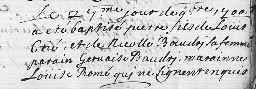 Le 27 me jour de 9bre 1700
a été baptisé pierre fils de Louis
et de Nicolle Baudry sa femme
parain Gervaise Baudry maraine
Louise René qui ne signent enquis